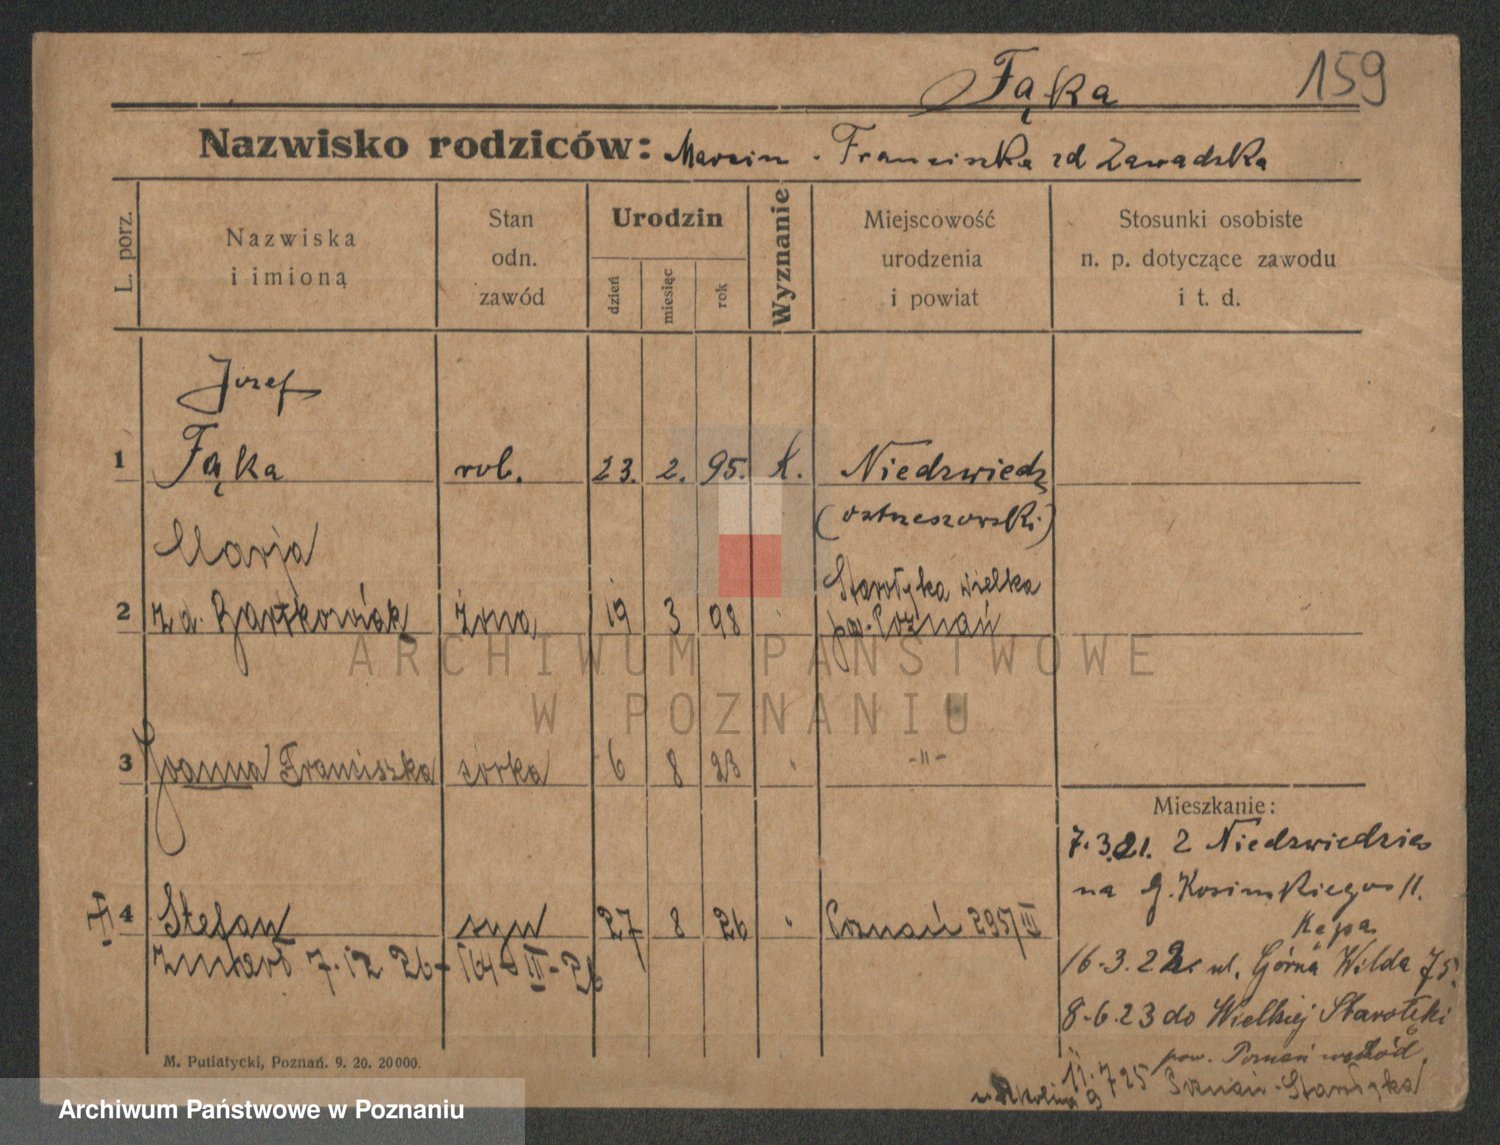 Fąka 159
Nazwisko rodziców: Marcin - Franciszka zd Zawadzka
L. porz.
Nazwiska
i imioną
Stan
odn.
zawód
Urodzin
dzień
miesiąc
rok
Wyznanie
Miejscowość
urodzenia
i powiat
Stosunki osobiste
n. p. dotyczące zawodu
i t. d.
Józef
1 Fąka rob. 23. 2. 95. K. Niedzwiedz
(ostrzeszowski)
Marja Starołęka wielka
2 zd. Bartkowiak żona 19 3 98 pow. Poznań
3 Joanna Franciszka córka 6 8 23 " -"-
Mieszkanie:
7.3.21. z Niedzwiedzia
na G. Kosinskiego 11.
4 Stefan syn 27 8 26 " Poznań 295/III
Kępa
Zmarł 7.12.26 - 164-III-26
16.3.22. ul. Górna Wilda 75.
8.6.23 do Wielkiej Starołęki
pow. Poznań wschód.
11.7 25 Poznań-Starołęka
9
M. Putiatycki, Poznań. 9. 20. 20000.
ARCHIWUM PAŃSTWOWE
W POZNANIU
Archiwum Państwowe w Poznaniu